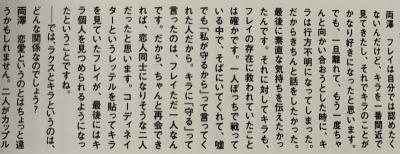 両澤　フレイは自分では認めたく
ないんだけど、キラを一番間近で
見てきたから、キラのことが
かなり好きになったと思います。
でも、一旦離れて、もう一度ちゃ
んと向かい合おうとした時に、キ
ラは行方不明になっちゃった。
だからきちんと話をしたかったし、
最後に素直な気持ちを伝えたかっ
たんです。それに対してキラも、
フレイの存在に救われていたこと
は確かです。一人ぼっちで戦って
いる中で、そばにいてくれて、嘘
でも「私が守るから」って言ってく
れた人だから。キラに「守る」って
言ったのは、フレイただ一人なん
です。だから、ちゃんと再会でき
れば、恋人同士になりそうな二人
だったと思います。コーディネイ
ターというレッテルを貼ってキラ
を見ていたフレイが、最後にはキ
ラ個人を見つめられるようになっ
たということですね。
──では、ラクスとキラというのは、
どんな関係なのでしょう？
両澤　恋愛というのとはちょっと違
うかもしれません。二人がカップル